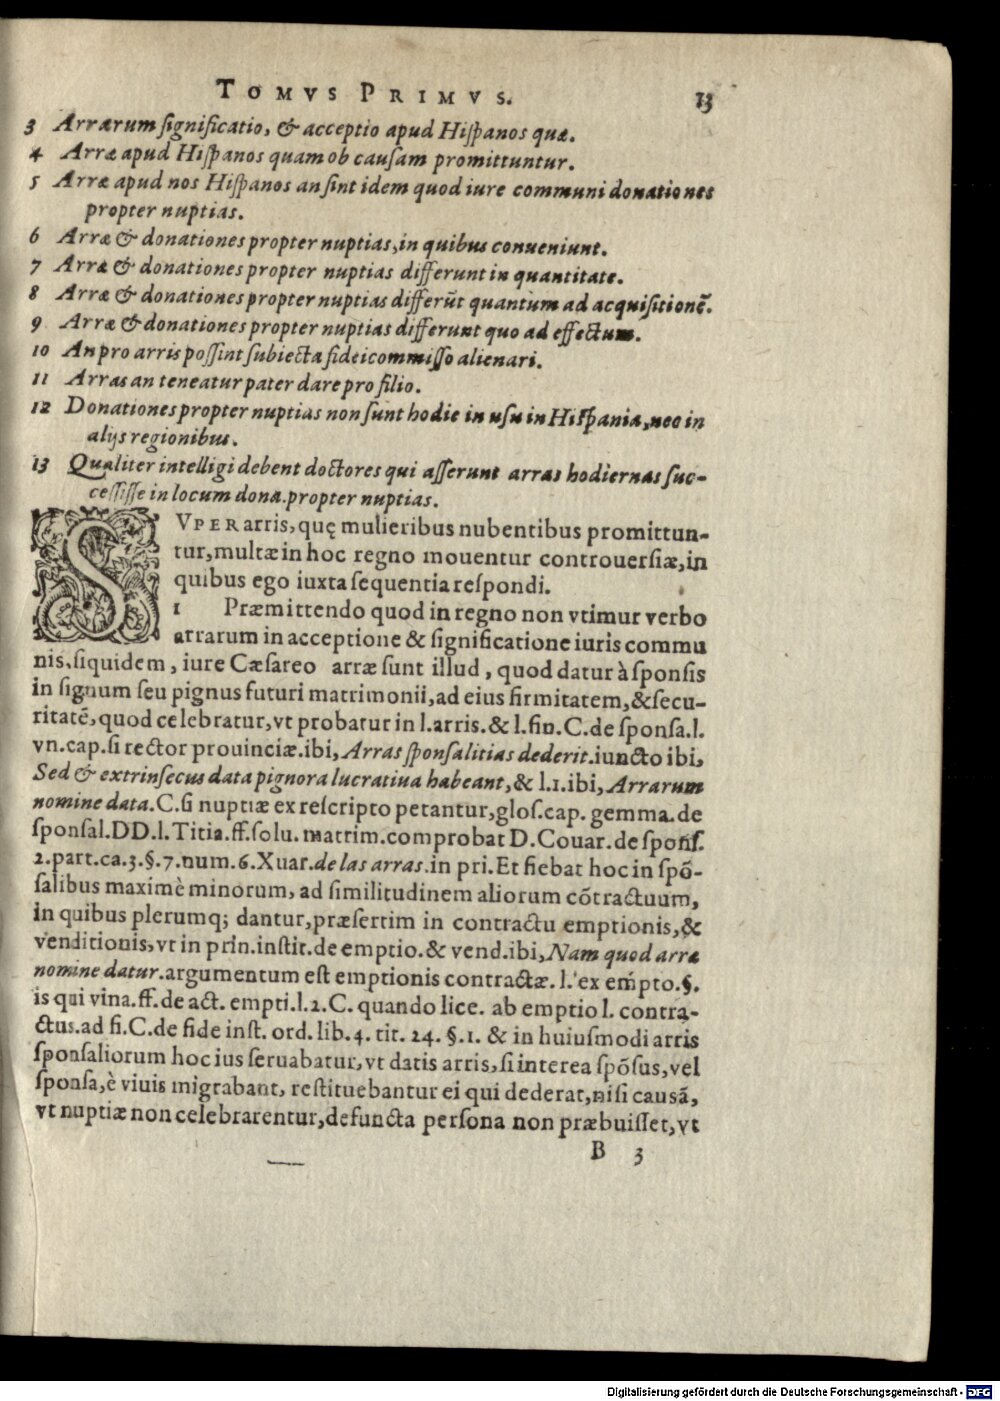 TOMVS PRIMVS. 13
3 Arrarum significatio, & acceptio apud Hispanos quæ.
4 Arræ apud Hispanos quam ob causam promittuntur.
5 Arræ apud nos Hispanos an sint idem quod iure communi donationes
propter nuptias.
6 Arræ & donationes propter nuptias, in quibus conueniunt.
7 Arræ & donationes propter nuptias differunt in quantitate.
8 Arræ & donationes propter nuptias differũt quantum ad acquisitionẽ.
9 Arræ & donationes propter nuptias differunt quo ad effectum.
10 An pro arris possint subiecta fideicommisso alienari.
11 Arras an teneatur pater dare pro filio.
12 Donationes propter nuptias non sunt hodie in usu in Hispania, nec in
alijs regionibus.
13 Qualiter intelligi debent doctores qui asserunt arras hodiernas suc-
cessisse in locum dona. propter nuptias.
SVPER arris, quę mulieribus nubentibus promittun-
tur, multæ in hoc regno mouentur controuersiæ, in
quibus ego iuxta sequentia respondi.
1 Præmittendo quod in regno non vtimur verbo
arrarum in acceptione & significatione iuris commu
nis, siquidem, iure Cæsareo arræ sunt illud, quod datur à sponsis
in signum seu pignus futuri matrimonii, ad eius firmitatem, & secu-
ritatẽ, quod celebratur, vt probatur in l. arris. & l. fin. C. de sponsa. l.
vn. cap. si rector prouinciæ. ibi, Arras sponsalitias dederit. iuncto ibi,
Sed & extrinsecus data pignora lucratiua habeant, & l.1. ibi, Arrarum
nomine data. C. si nuptiæ ex rescripto petantur, glos. cap. gemma. de
sponsal. DD. l. Titia. ff. solu. matrim. comprobat D. Couar. de spons.
2. part. ca. 3. §. 7. num. 6. Xuar. de las arras. in pri. Et fiebat hoc in spõ-
salibus maximè minorum, ad similitudinem aliorum cõtractuum,
in quibus plerumq; dantur, præsertim in contractu emptionis, &
venditionis, vt in prin. instit. de emptio. & vend. ibi, Nam quod arræ
nomine datur. argumentum est emptionis contractæ. l. ex empto. §.
is qui vina. ff. de act. empti. l. 2. C. quando lice. ab emptio l. contra-
ctus. ad fi. C. de fide inst. ord. lib. 4. tit. 24. §. 1. & in huiusmodi arris
sponsaliorum hoc ius seruabatur, vt datis arris, si interea spõsus, vel
sponsa, è viuis migrabant, restituebantur ei qui dederat, nisi causã,
vt nuptiæ non celebrarentur, defuncta persona non præbuisset, vt
B 3
Digitalisierung gefördert durch die Deutsche Forschungsgemeinschaft - DFG